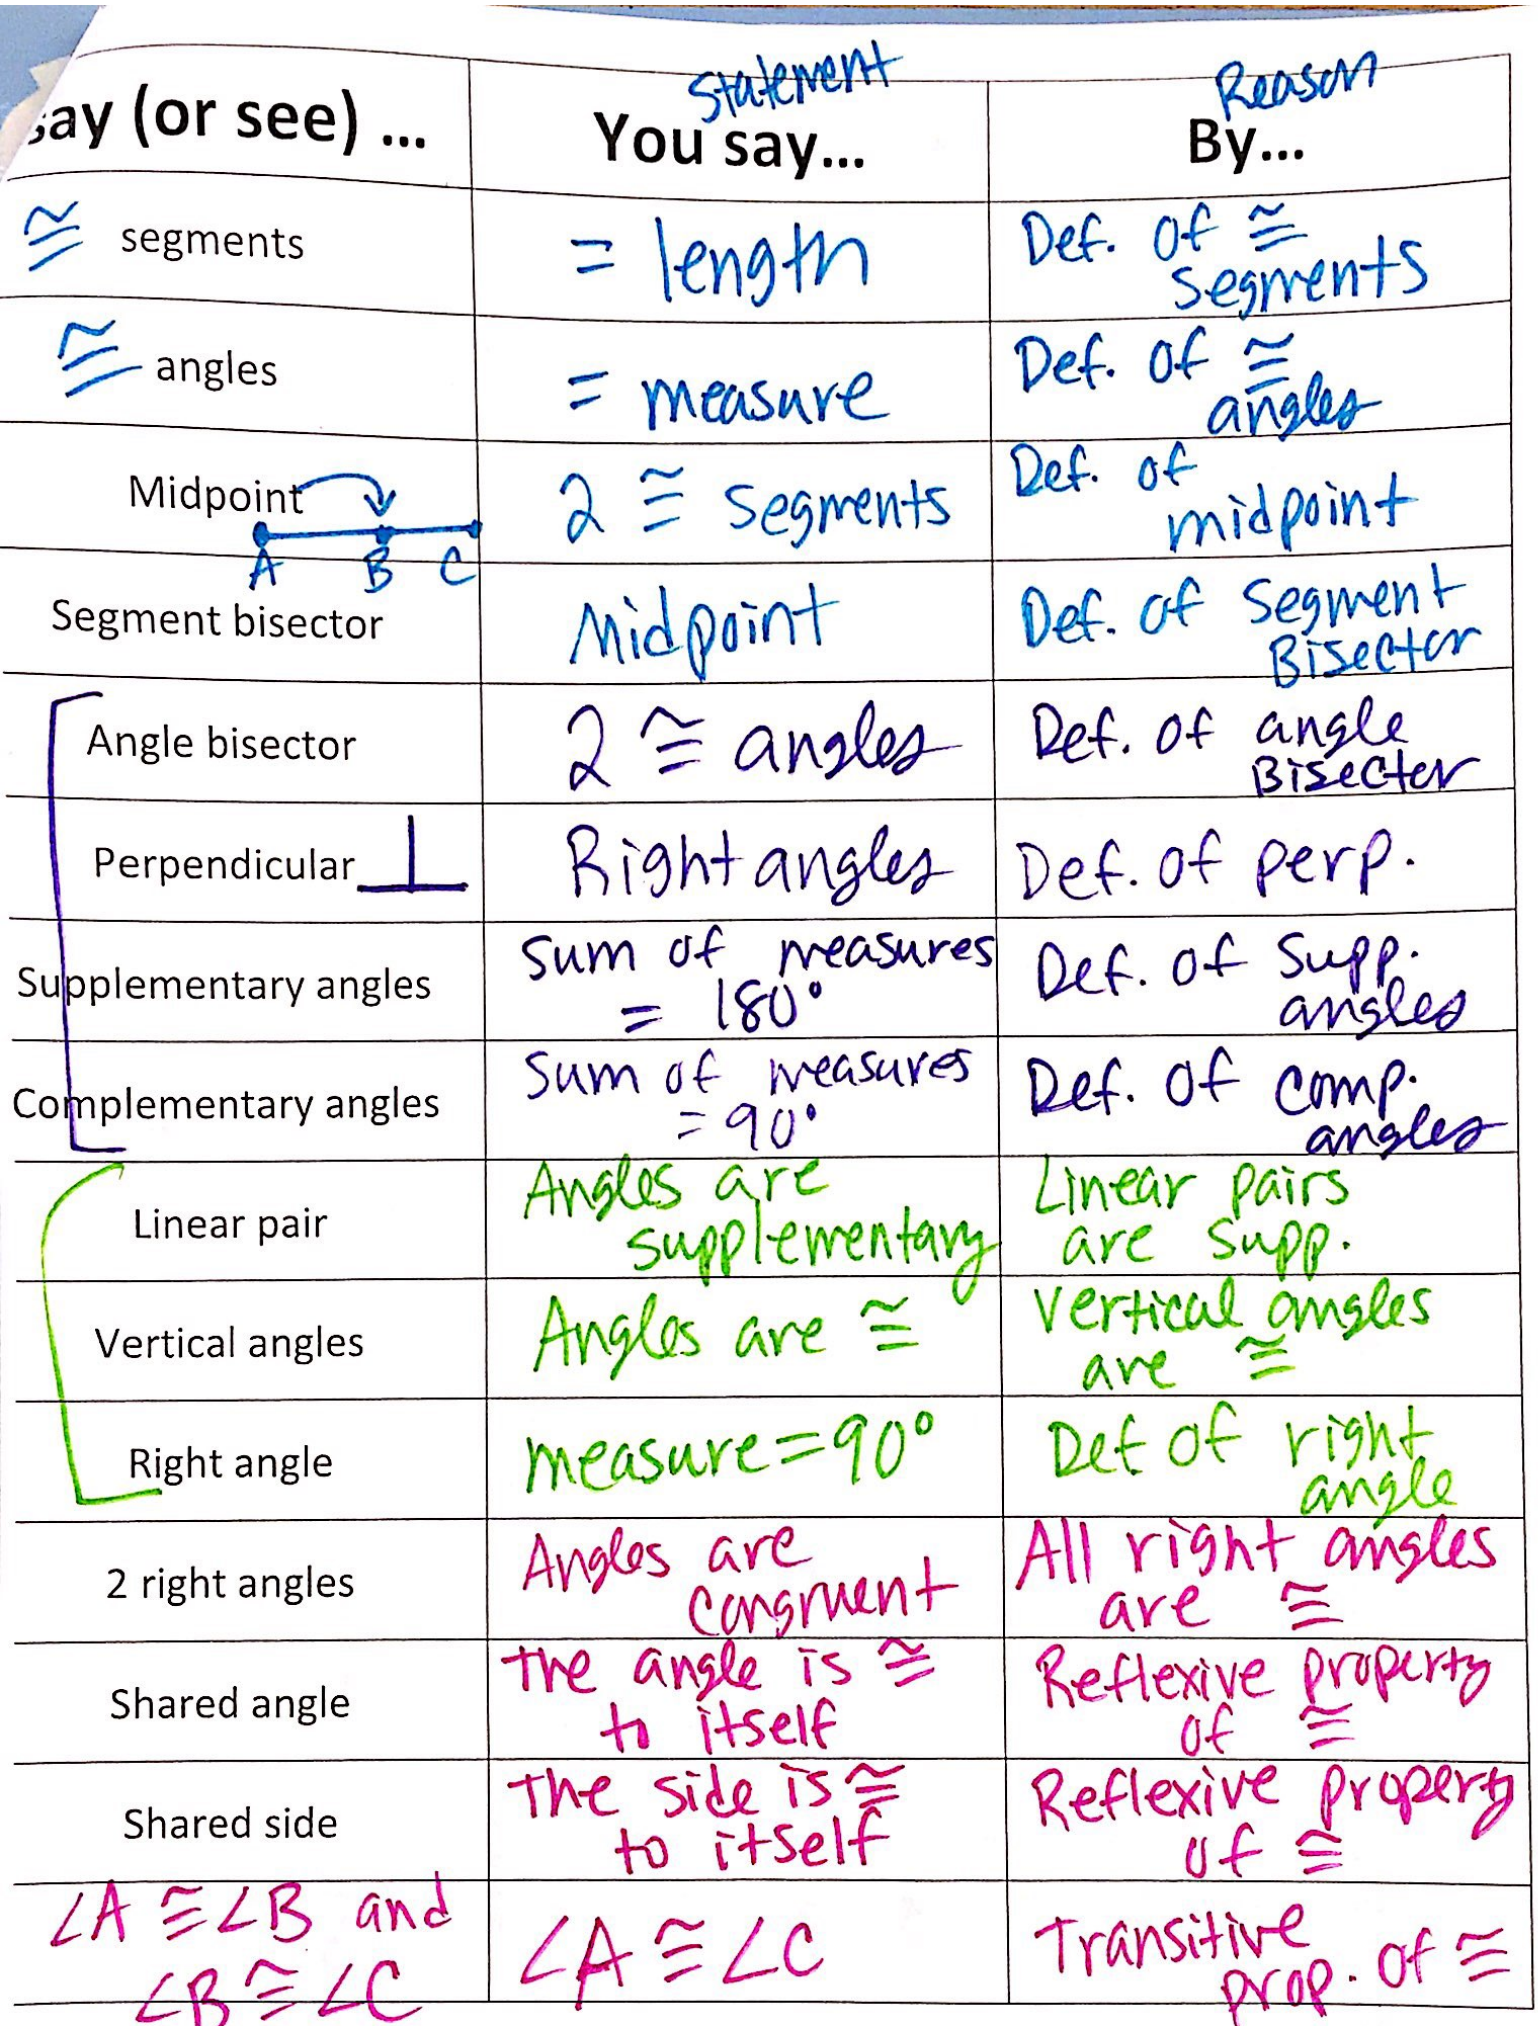 say (or see) ...
Statement
You say...
Reason
By...
≅ segments
= length
Def. of ≅
segments
≅ angles
= measure
Def. of ≅
angles
Midpoint
A B C
2 ≅ segments
Def. of
midpoint
Segment bisector
Midpoint
Def. of segment
Bisector
Angle bisector
2 ≅ angles
Def. of angle
Bisector
Perpendicular ⊥
Right angles
Def. of perp.
Supplementary angles
sum of measures
= 180°
Def. of supp.
angles
Complementary angles
sum of measures
= 90°
Def. of comp.
angles
Linear pair
Angles are
supplementary
Linear pairs
are supp.
Vertical angles
Angles are ≅
Vertical angles
are ≅
Right angle
measure = 90°
Def of right
angle
2 right angles
Angles are
congruent
All right angles
are ≅
Shared angle
the angle is ≅
to itself
Reflexive property
of ≅
Shared side
the side is ≅
to itself
Reflexive property
of ≅
∠A ≅ ∠B and
∠B ≅ ∠C
∠A ≅ ∠C
Transitive
prop. of ≅